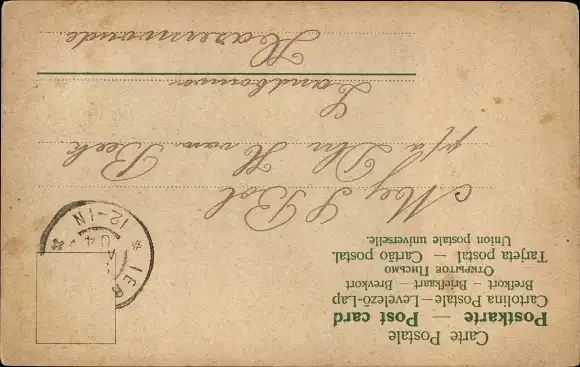 Carte Postale
Postkarte — Post card
Cartolina Postale — Levelező-Lap
Brefkort — Briefkaart — Brevkort
Открытое Письмо
Tarjeta postal — Cartão postal.
Union postale universelle.
12-1N
04
Mej S Bol
p/a Dhr H van Beek
Landbouwer
Hazerswoude